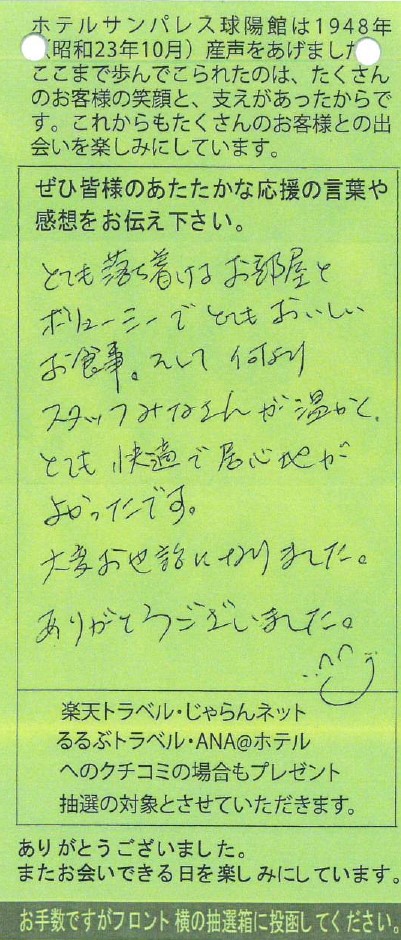 ホテルサンパレス球陽館は1948年
（昭和23年10月）産声をあげました
ここまで歩んでこられたのは、たくさん
のお客様の笑顔と、支えがあったからで
す。これからもたくさんのお客様との出
会いを楽しみにしています。
ぜひ皆様のあたたかな応援の言葉や
感想をお伝え下さい。
とても落ち着けるお部屋と
ボリューミーでとてもおいしい
お食事。そして何より
スタッフみなさんが温かく、
とても快適で居心地が
よかったです。
大変お世話になりました。
ありがとうございました。
楽天トラベル・じゃらんネット
るるぶトラベル・ANA@ホテル
へのクチコミの場合もプレゼント
抽選の対象とさせていただきます。
ありがとうございました。
またお会いできる日を楽しみにしています。
お手数ですがフロント横の抽選箱に投函してください。